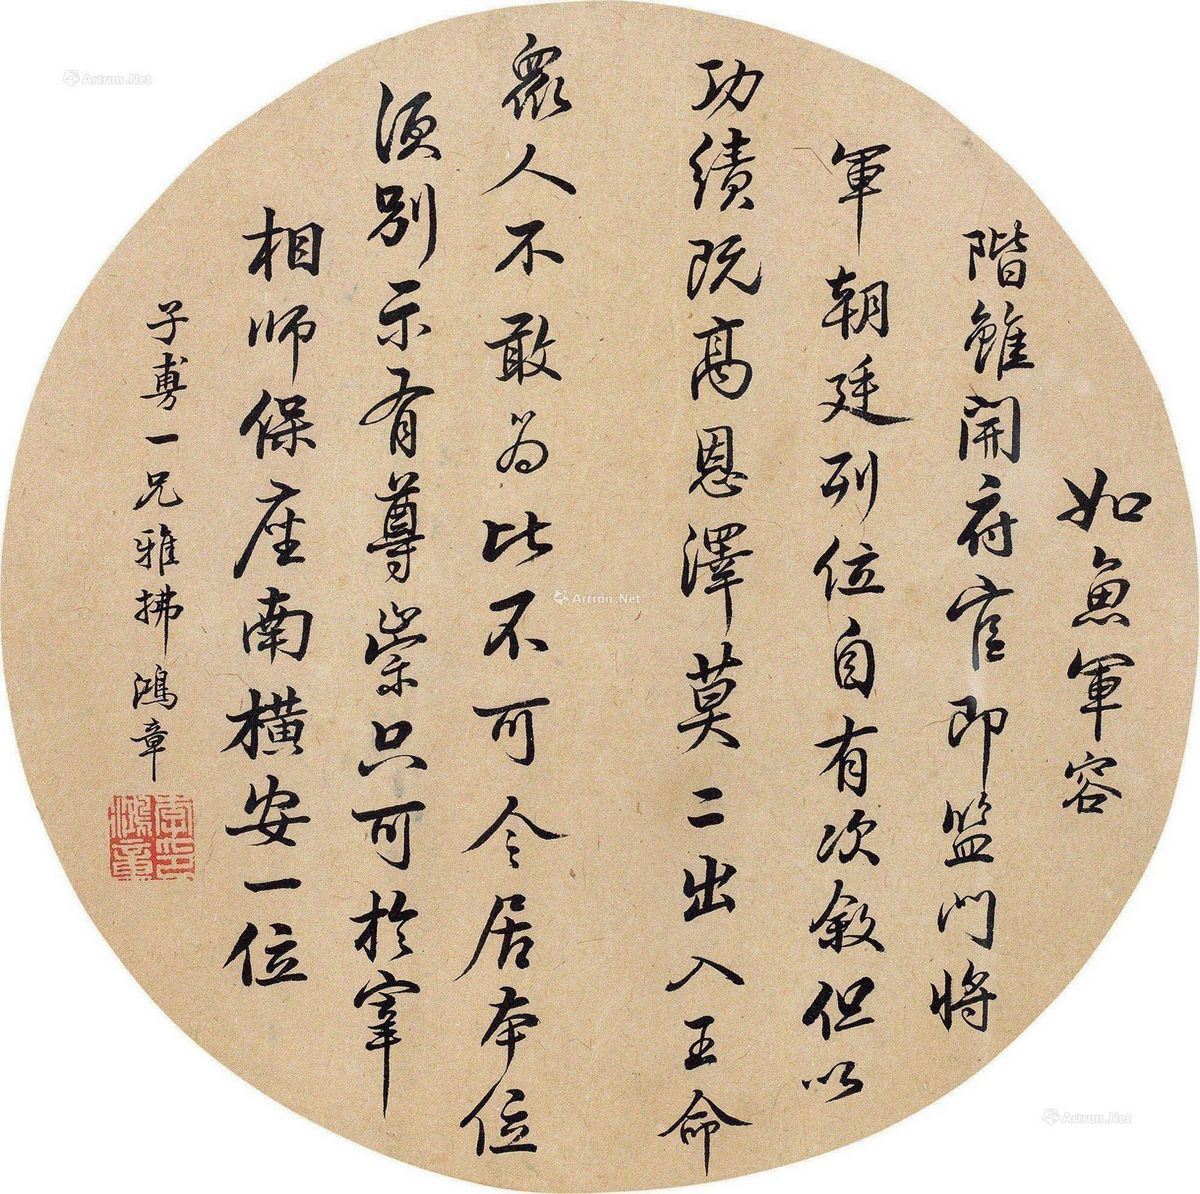 如魚軍容
階雖開府官即監門將
軍朝廷列位自有次敘但以
功績既高恩澤莫二出入王命
眾人不敢為比不可令居本位
須別示有尊崇只可於宰
相師保座南橫安一位
子尃一兄雅拂鴻章
李鴻章印
Artron.Net
Artron.Net
Artron.Net